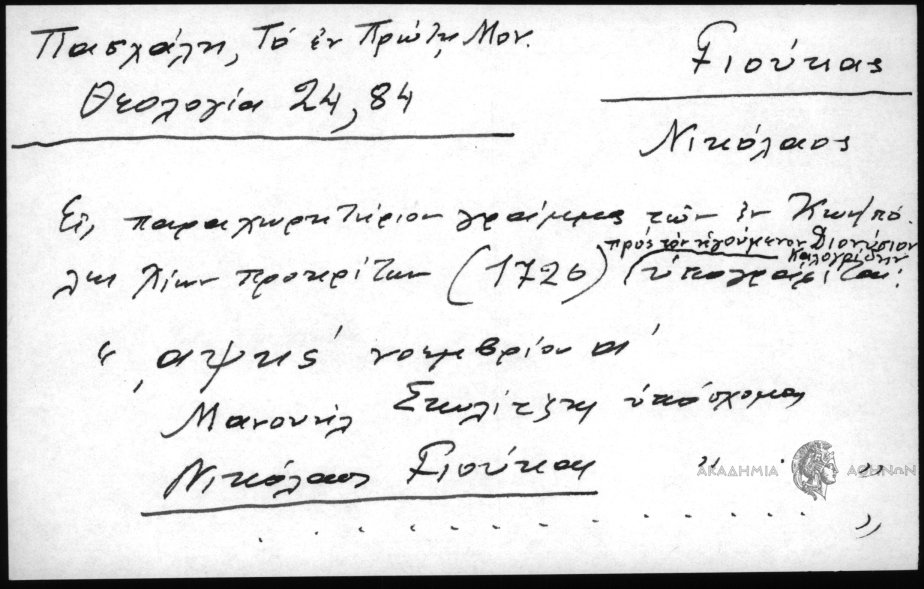 Πασχάλη, Τὸ ἐν Πρώτῃ Μον.
Θεολογία 24, 84
Γιούκας
Νικόλαος
Εἰς παραχωρητήριον γράμμα τῶν ἐν Κων/πό
λει Χίων προκρίτων (1726) (ὑπογράφεται:
πρὸς τὸν ἡγούμενον Διονύσιον
Καλογρίδην
" ͵αψκς´ νοεμβρίου α´
Μανουὴλ Σκυλίτζης ὑπόσχομαι
Νικόλαος Γιούκας " "
ΑΚΑΔΗΜΙΑ ΑΘΗΝΩΝ
. . . . . . . . . . . . . . . . . »